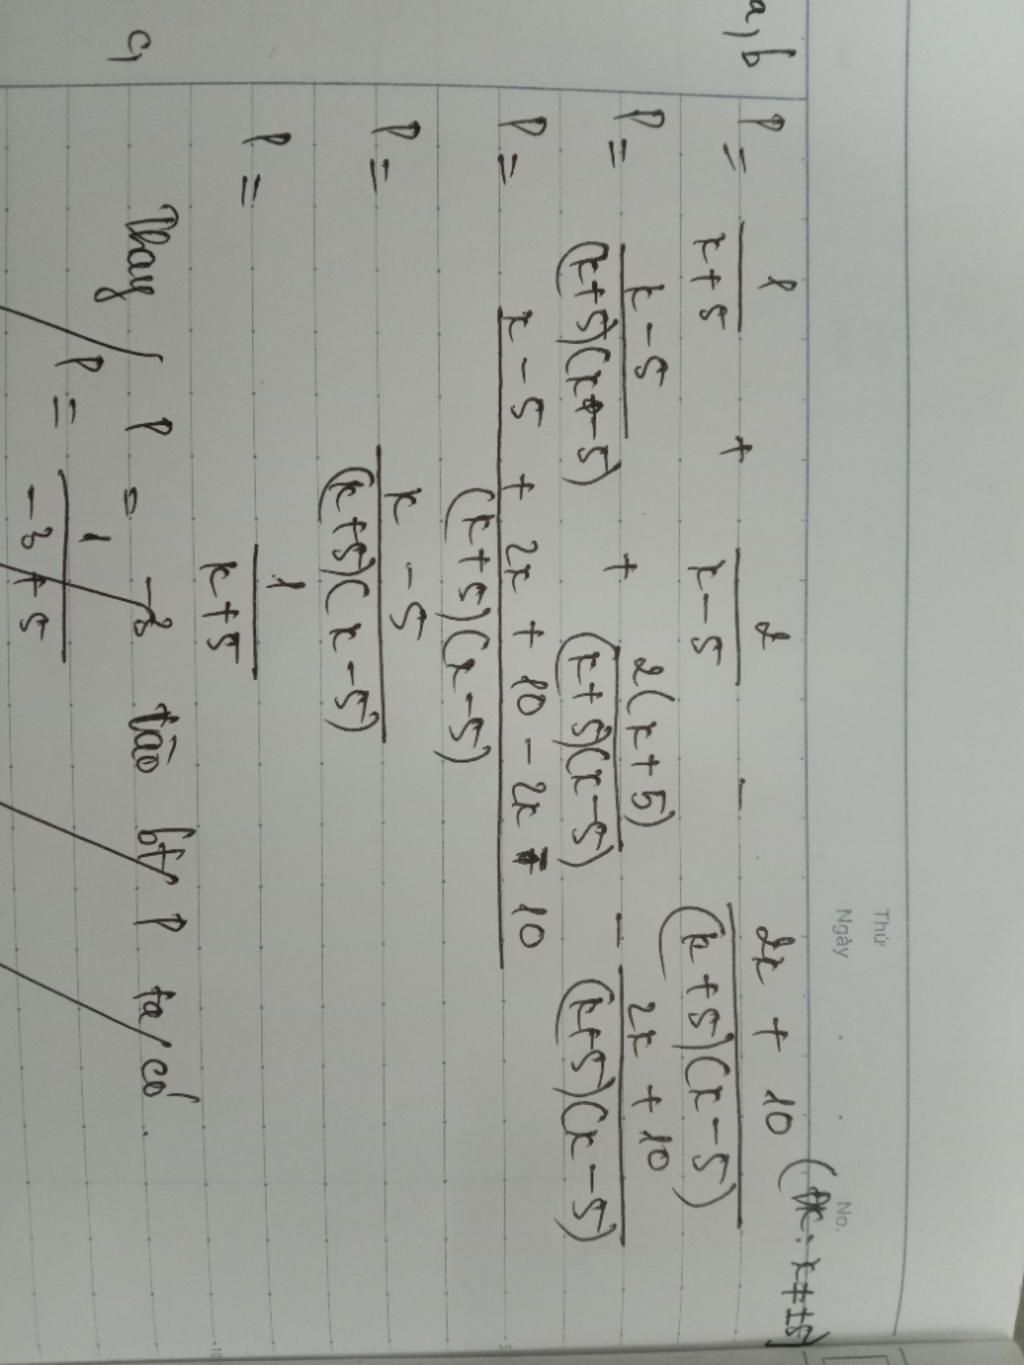 Thứ
Ngày . . No.
a, b P = 1/(x+5) + 2/(x-5) - (2x + 10)/((x+5)(x-5)) (ĐK: x ≠ ±5)
P = (x-5)/((x+5)(x-5)) + 2(x+5)/((x+5)(x-5)) - (2x + 10)/((x+5)(x-5))
P = (x - 5 + 2x + 10 - 2x - 10)/((x+5)(x-5))
P = (x - 5)/((x+5)(x-5))
P = 1/(x+5)
c, Thay P = -3 vào bt P ta có
P = 1/(-3+5)